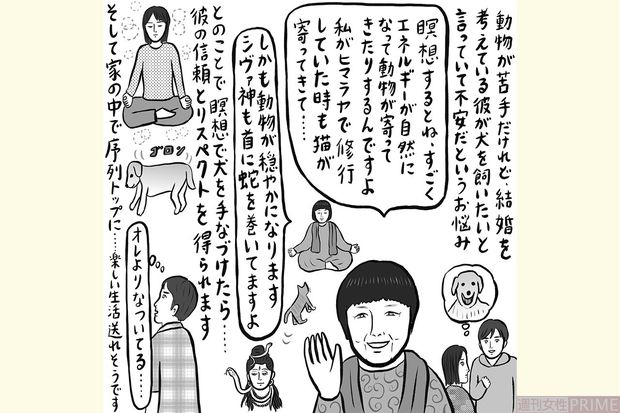 動物が苦手だけれど、結婚を
考えている彼が犬を飼いたいと
言っていて不安だというお悩み
瞑想するとね、すごく
エネルギーが自然に
なって動物が寄って
きたりするんですよ
私がヒマラヤで修行
していた時も猫が
寄ってきて……
しかも動物が穏やかになります
シヴァ神も首に蛇を巻いてますよ
とのことで瞑想で犬を手なづけたら……
彼の信頼とリスペクトを得られます
ゴロン
オレよりなついてる……
そして家の中で序列トップに……楽しい生活送れそうです
週刊女性PRIME